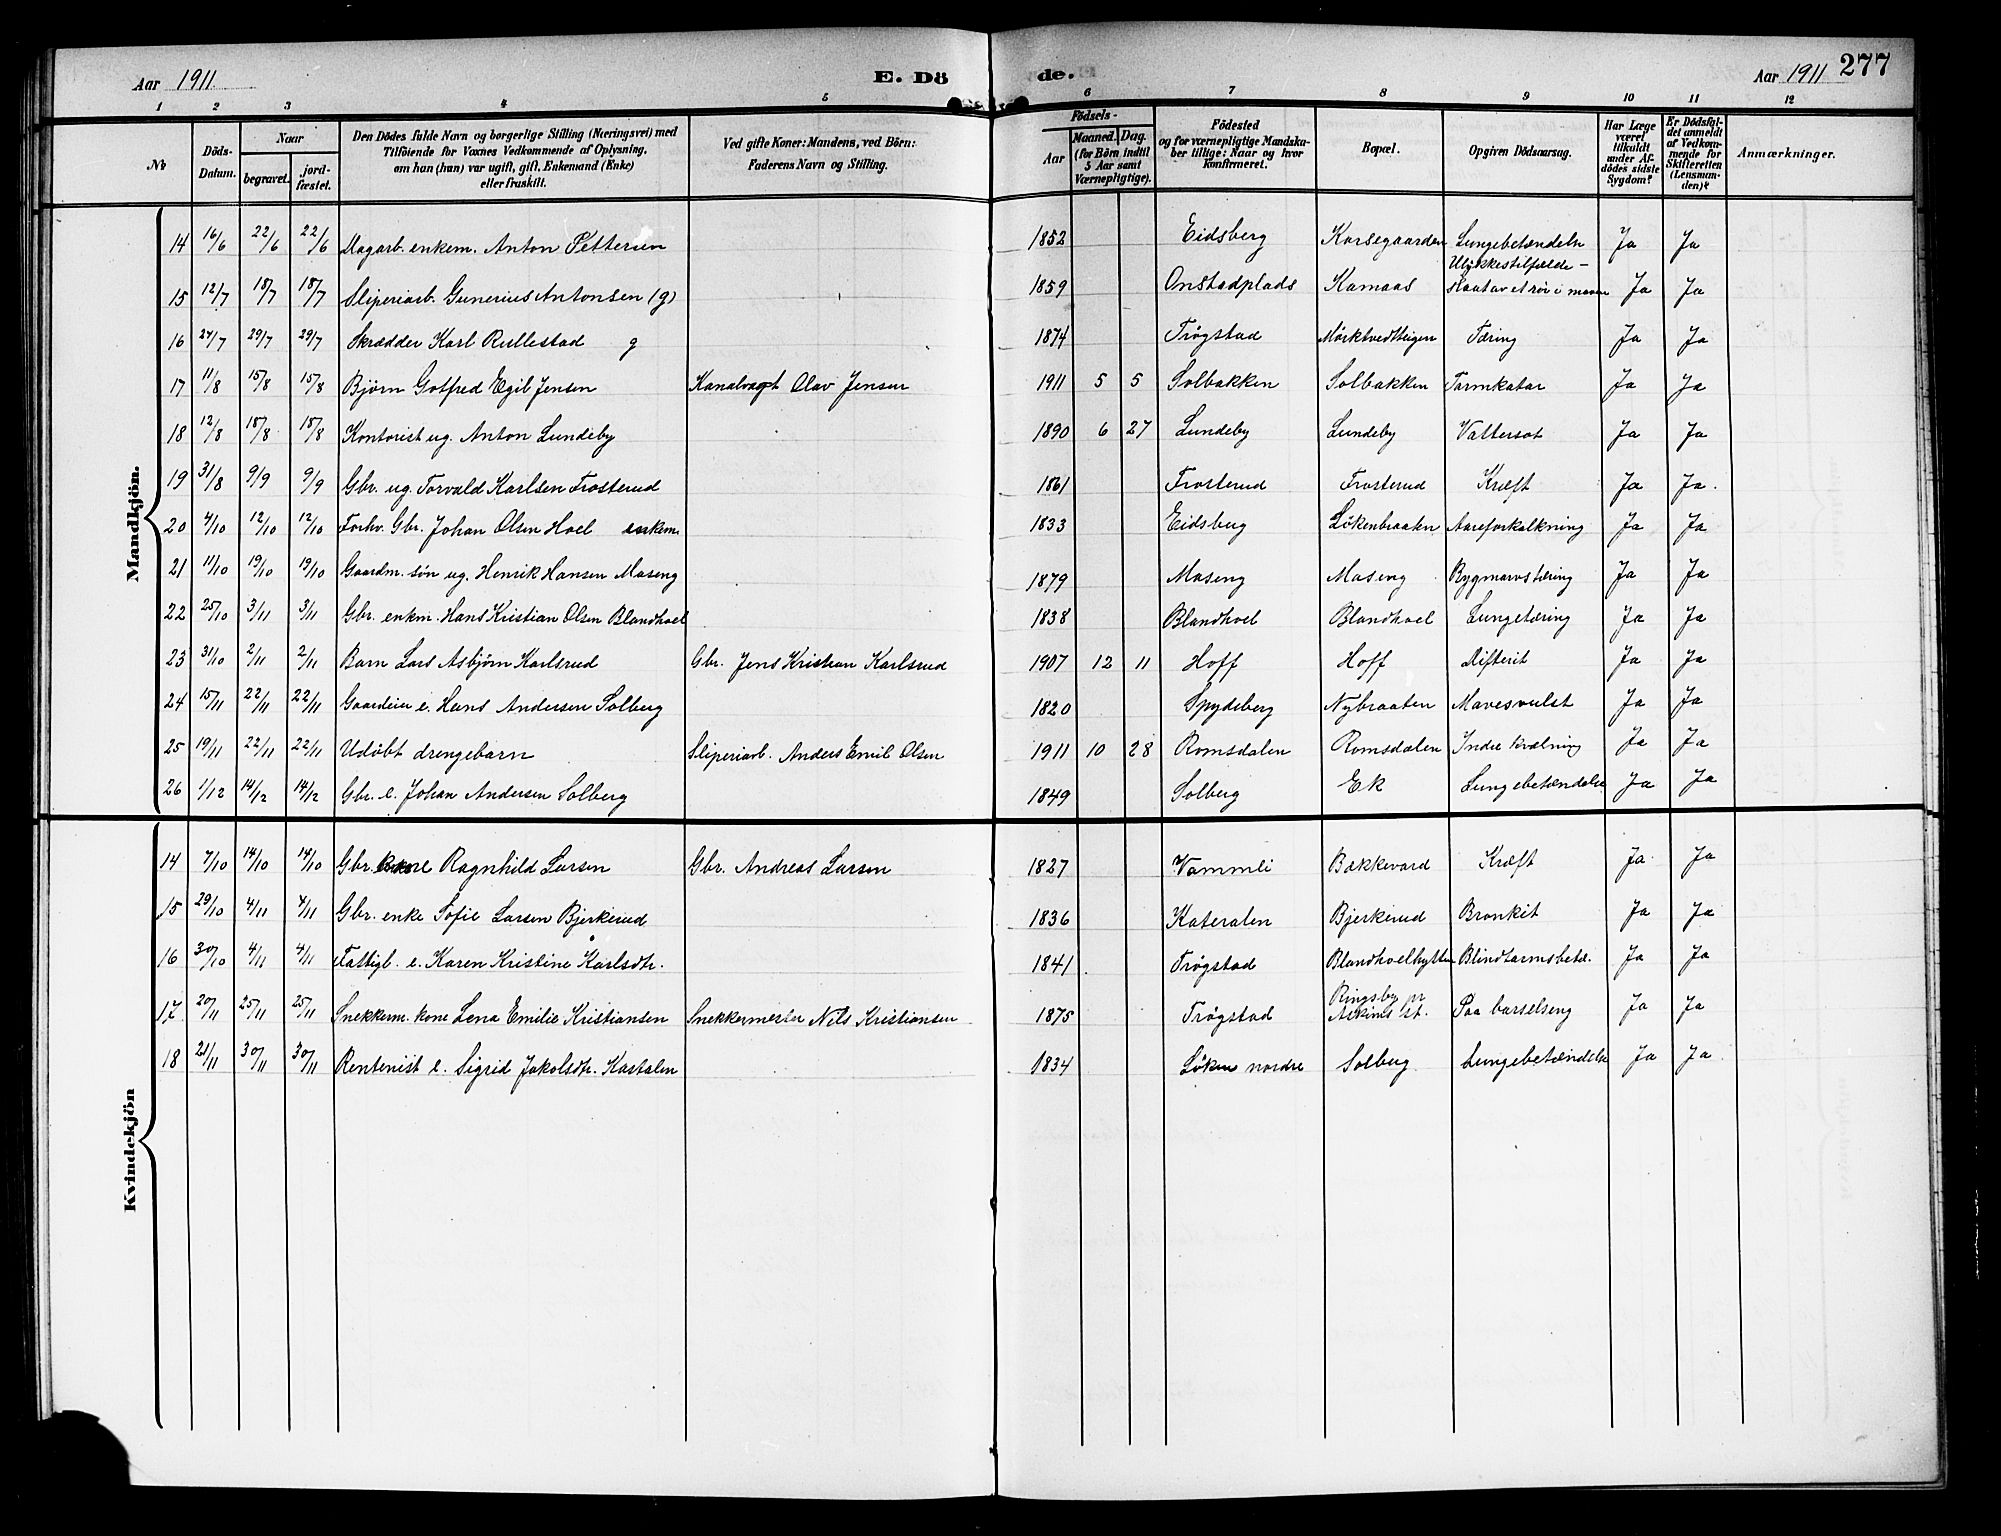 Aar 1911 E. Dö de. Aar 1911 277
1 2 3 4 5 6 7 8 9 10 11 12
No
Döds-
Datum.
Naar
begravet.
jord-
fæstet.
Den Dödes fulde Navn og borgerlige Stilling (Næringsvei) med
Tilföiende for Voxnes Vedkommende af Oplysning,
om han (hun) var ugift, gift, Enkemand (Enke)
eller fraskilt.
Ved gifte Koner: Mandens, ved Börn:
Faderens Navn og Stilling.
Födsels-
Aar
Maaned. Dag.
(for Börn indtil
5 Aar samt
Værnepligtige).
Födested
og for værnepligtige Mandska-
ber tillige: Naar og hvor
Konfirmeret.
Bopæl.
Opgiven Dödsaarsag.
Har Læge
været
tilkaldt
under Af-
dödes sidste
Sygdom?
Er Dödsfal-
det anmeldt
af Vedkom-
mende for
Skifteretten
(Lensman-
den)?
Anmærkninger.
Mandkjön.
14 16/6 22/6 22/6 Dagarb. enkem. Anton Pettersen 1852 Eidsberg Korsegaarden Lungebetændelse Ja Ja
15 12/7 18/7 18/7 Sliperiarb. Gunerius Antonsen (g) 1859 Onstadplads Kamaas Ulykkestilfælde - slaat av et rör i maven Ja Ja
16 24/7 29/7 29/7 Skrædder Karl Rullestad g 1874 Trøgstad Mørktvedtteigen Tæring Ja Ja
17 11/8 15/8 15/8 Bjørn Gotfred Egil Jensen Kanalvagt Olav Jensen 1911 5 5 Solbakken Solbakken Tarmkatar Ja Ja
18 12/8 18/8 18/8 Kontorist ug. Anton Lundeby 1890 6 27 Lundeby Lundeby Vattersot Ja Ja
19 31/8 9/9 9/9 Gbr. ug. Torvald Karlsen Frosterud 1861 Frosterud Frosterud Kræft Ja Ja.
20 4/10 12/10 12/10 Forhv. Gbr. Johan Olsen Hoel enkem. 1833 Eidsberg Løkenbraaten Aareforkalkning Ja Ja
21 11/10 19/10 19/10 Gaardm. søn ug. Henrik Hansen Moseng 1879 Moseng Moseng Rygmarvstæring Ja Ja
22 25/10 3/11 3/11 Gbr. enkm. Hans Kristian Olsen Blandhoel 1838 Blandhoel Blandhoel Lungetæring Ja Ja
23 31/10 2/11 2/11 Barn Lars Asbjørn Karlsrud Gbr. Jens Kristian Karlsrud 1907 12 11 Hoff Hoff Difterit Ja Ja
24 15/11 22/11 22/11 Gaardeier e. Hans Andersen Solberg 1820 Spydeberg Nybraaten Mavesvulst Ja Ja
25 19/11 22/11 22/11 Udøbt drengebarn Sliperiarb. Anders Emil Olsen 1911 10 28 Romsdalen Romsdalen Indre kvælning Ja Ja
26 1/12 14/12 14/12 Gbr. e. Johan Andersen Solberg 1849 Solberg Ek Lungebetændelse Ja Ja
Kvindekjön
14 7/10 14/10 14/10 Gbr. kone Ragnhild Larsen Gbr. Andreas Larsen 1827 Vammeli Bakkevard Kræft Ja Ja
15 29/10 4/11 4/11 Gbr. enke Sofie Larsen Bjerkerud 1836 Kateralen Bjerkerud Bronkit Ja Ja
16 30/10 4/11 4/11 Fattigl. e. Karen Kristine Karlsdtr. 1841 Trøgstad Blandhoelhytten Blindtarmsbetæ. Ja Ja
17 20/11 25/11 25/11 Snekkerm. kone Lena Emilie Kristiansen Snekkermester Nils Kristiansen 1875 Trøgstad Ringsby pr Askims st. Paa barselseng Ja Ja
18 21/11 30/11 30/11 Rentenist e. Sigrid Jakobsdtr. Kastalen 1834 Løken nordre Solberg Lungebetændelse Ja Ja